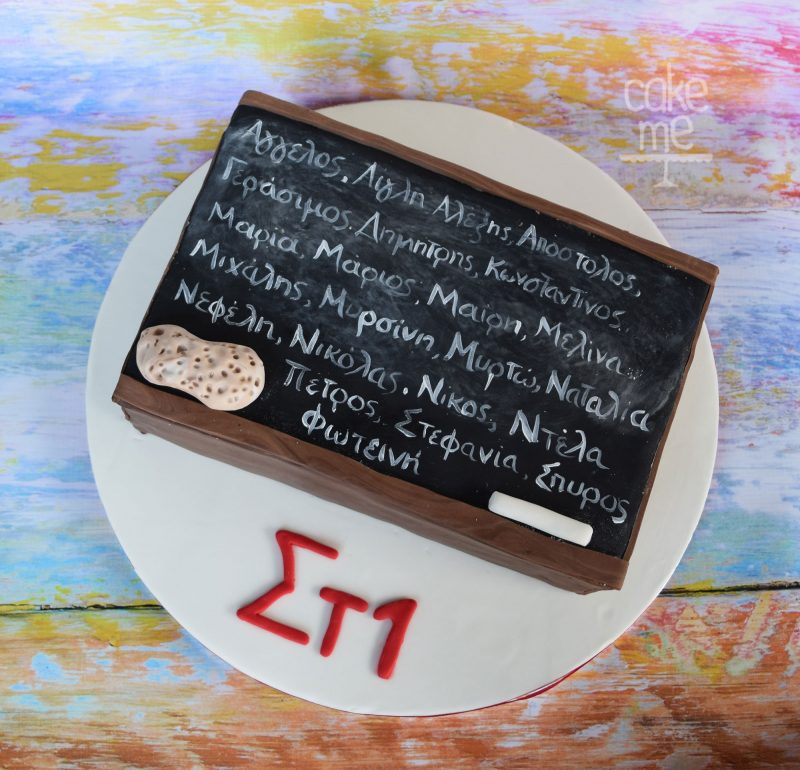 cake
me
Αγγελος, Αιγλη Αλέξης, Απόστολος,
Γεράσιμος, Δημητρης, Κωνσταντίνος,
Μαρία, Μάριος, Μαίρη, Μελίνα...
Μιχάλης, Μυρσίνη, Μυρτώ, Ναταλία
Νεφέλη, Νικόλας, Νικος, Ντέλα
Πετρος, Στεφανία, Σπυρος
Φωτεινή
Στ1